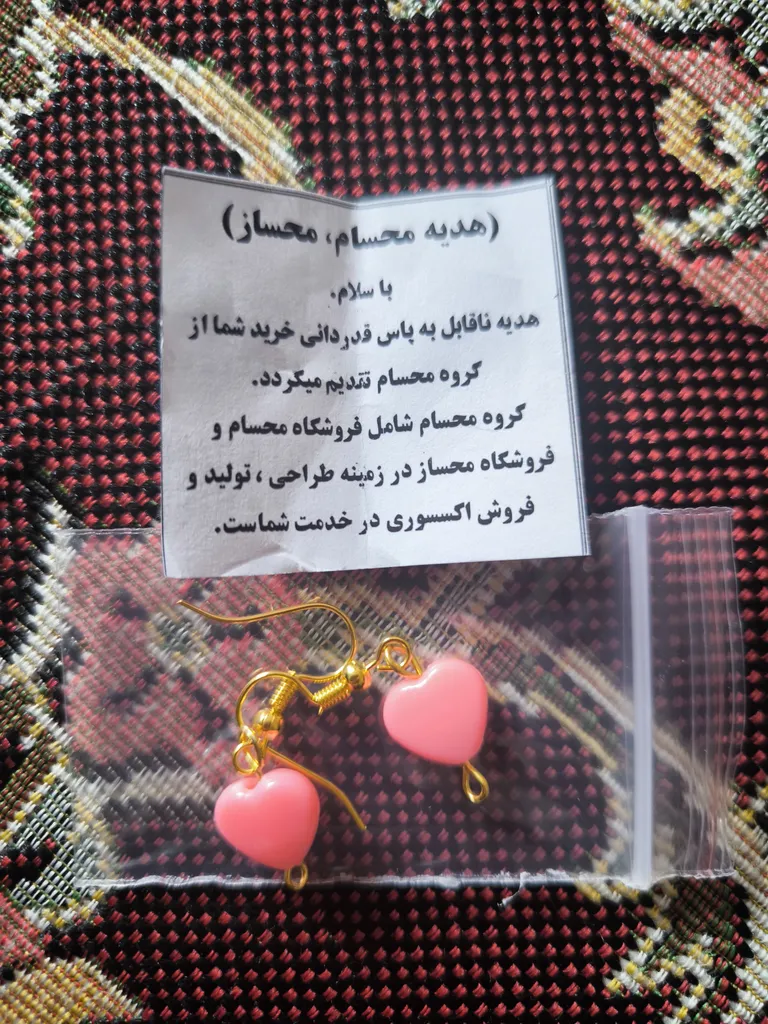 (هدیه محسام، محساز)
با سلام.
هدیه ناقابل به پاس قدردانی خرید شما از
گروه محسام تقدیم میگردد.
گروه محسام شامل فروشگاه محسام و
فروشگاه محساز در زمینه طراحی ، تولید و
فروش اکسسوری در خدمت شماست.